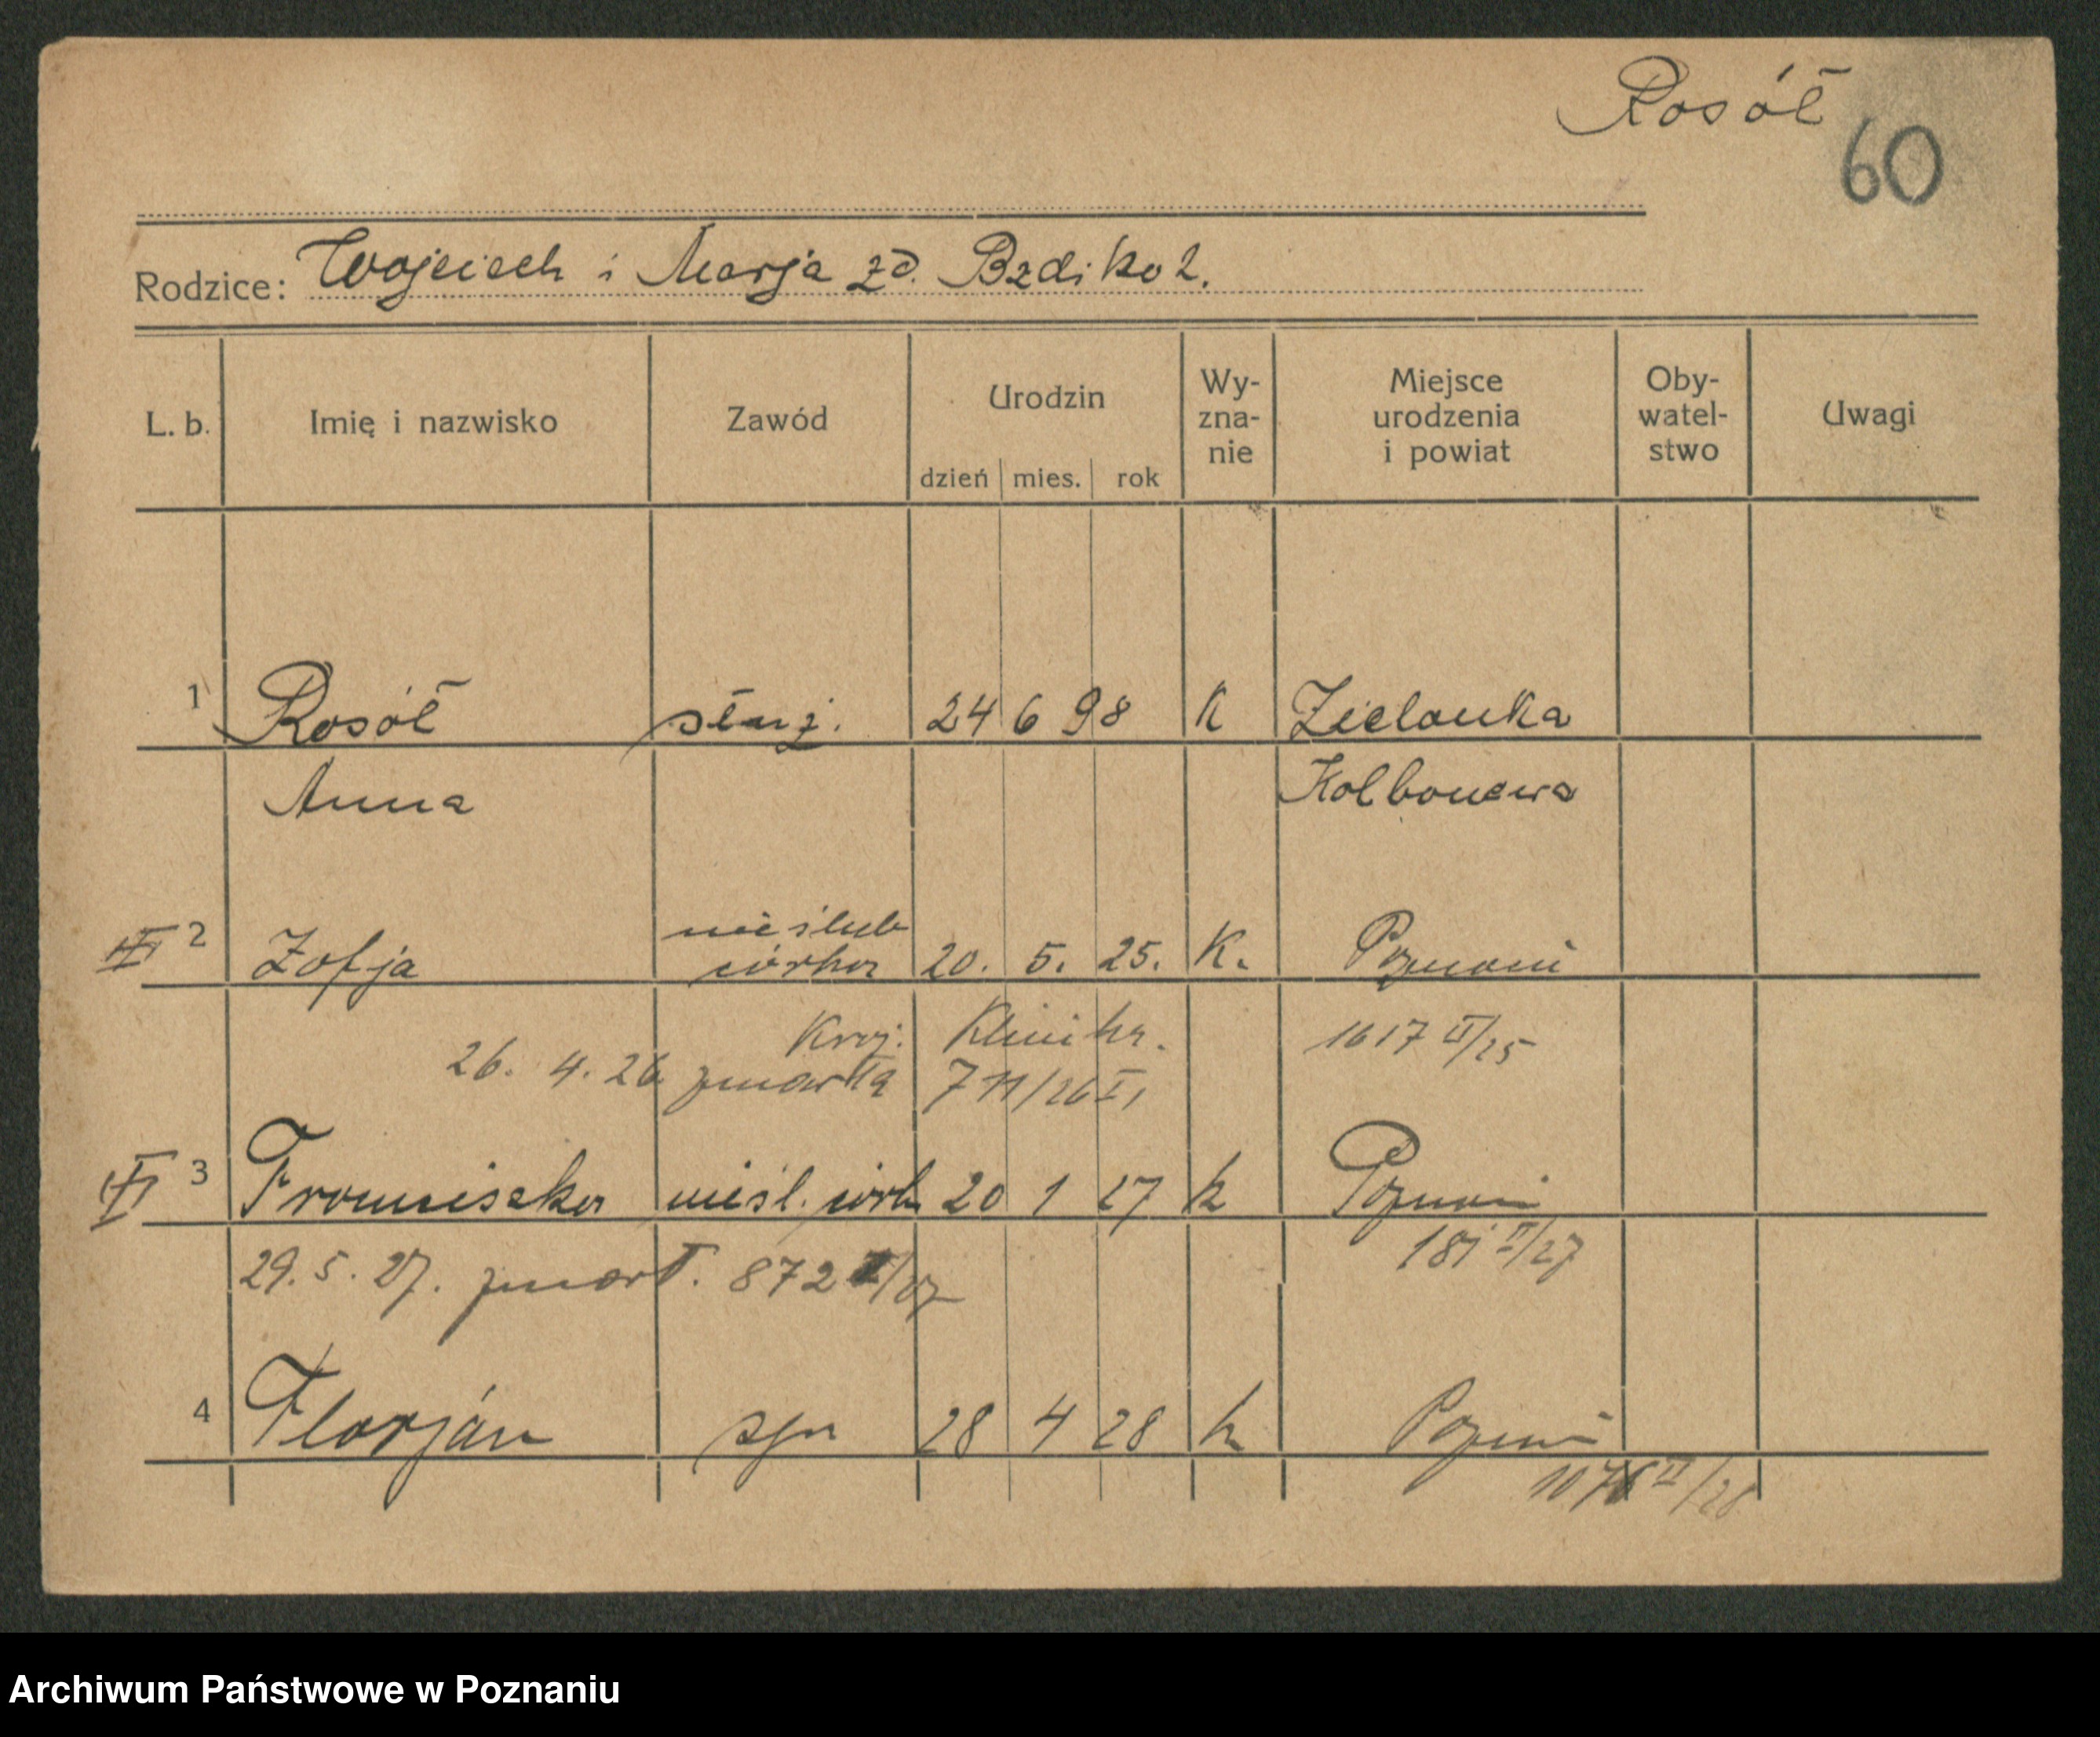 Rosół
60
Rodzice: Wojciech i Marja zd. Bzdikot.
L. b. Imię i nazwisko Zawód Urodzin dzień mies. rok Wy-zna-nie Miejsce urodzenia i powiat Oby-watel-stwo Uwagi
1 Rosół służ. 24 6 98 K Zielonka
Anna Kolbouewa
nieślub
2 Zofja córka 20. 5. 25. K. Poznań
Kraj. Klinika. 1617 II/25
26. 4. 26 zmarła 711/26 I,
3 Franciszka nieśl. córk 20 1 27 k Poznań
181 II/27
29. 5. 27. zmarł. 872 II/27
4 Florján syn 28 4 28 k Poznań
II/28
Archiwum Państwowe w Poznaniu